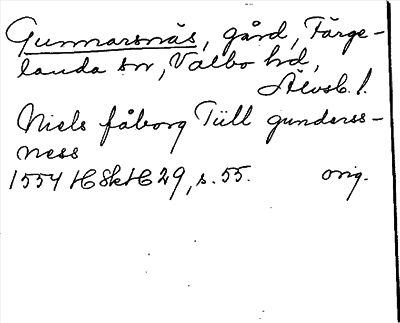 Gunnarsnäs, gård, Färge-
landa sn, Valbo hd,
Älvsb. l.
Niels fåborg Tüll gunderss-
ness
1554 HSkH 29, s. 55. orig.